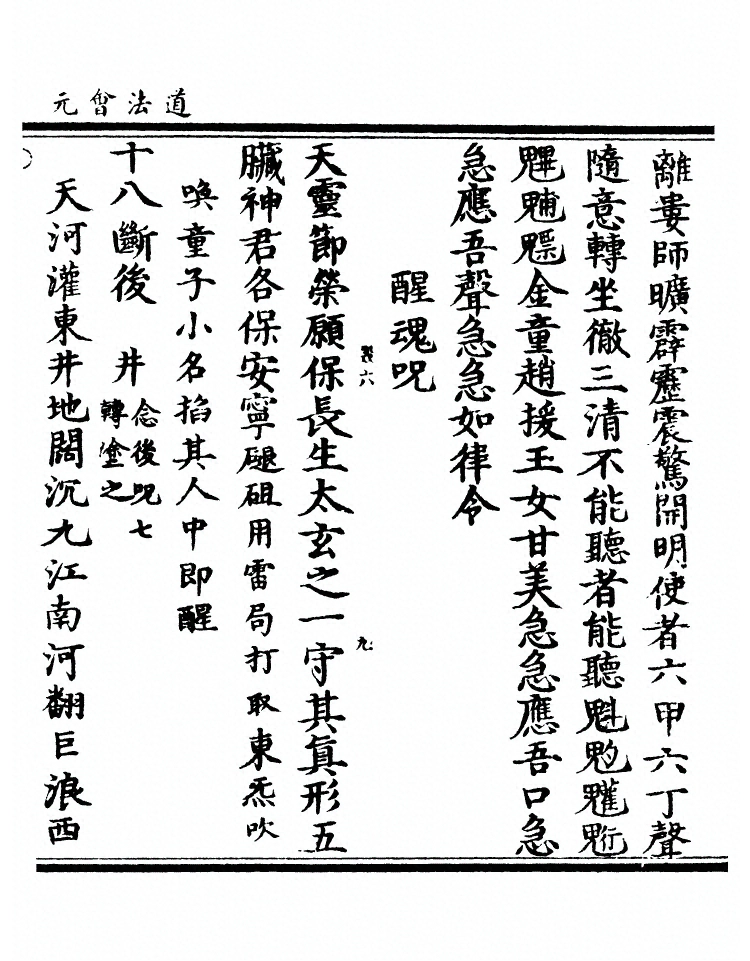 道法會元
離婁師曠霹靂震驚開明使者六甲六丁聲
隨意轉坐徹三清不能聽者能聽魁𩲃𩵄䰢
魓𩳐魒金童趙援玉女甘美急急應吾口急
急應吾聲急急如律令
醒魂呪
天靈節榮願保長生太玄之一守其眞形五
九
臟神君各保安寧砠用雷局打取東炁吹
喚童子小名掐其人中即醒
十八斷後 井 念後呪七
轉塗之
天河灌東井地闊沉九江南河翻巨浪西